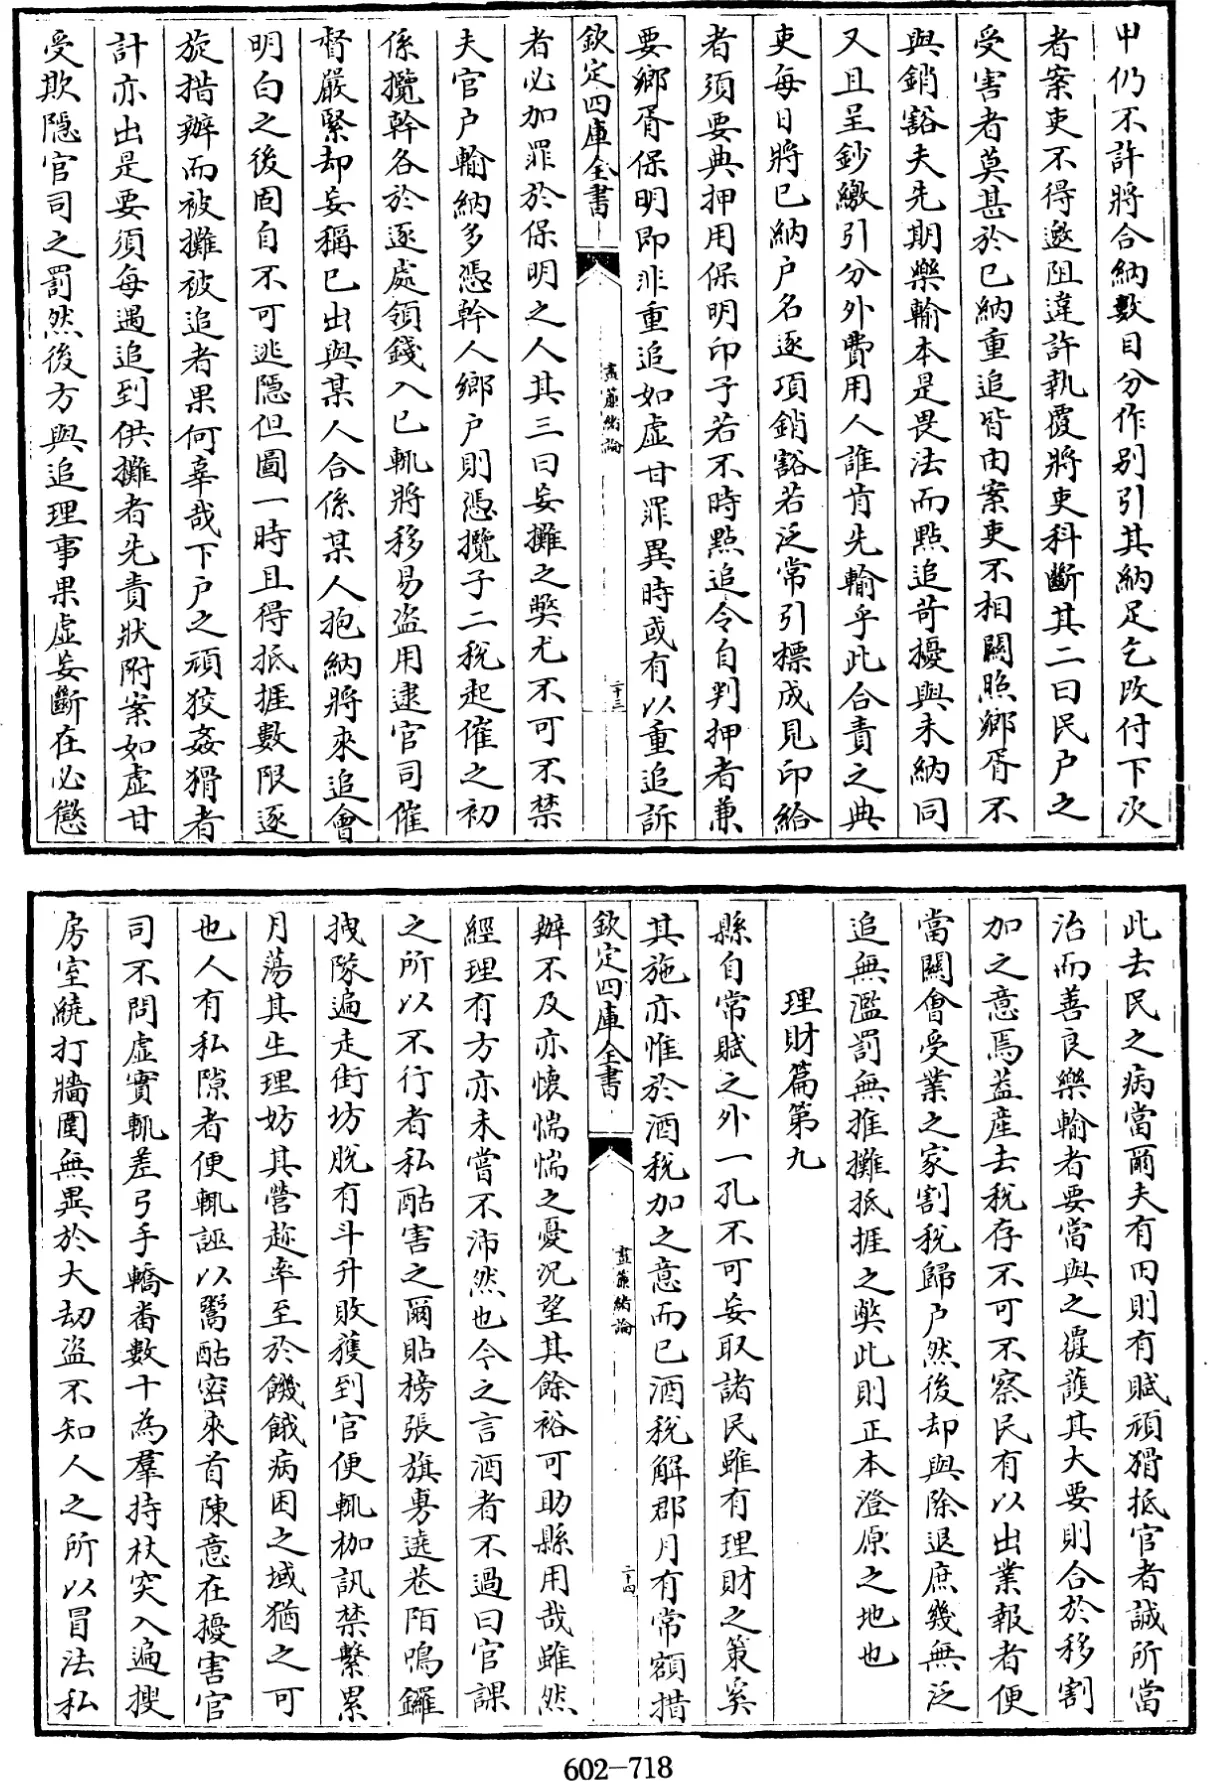 甲仍不許將合納數目分作别引其納足乞改付下次
者案吏不得邀阻違許執覆將吏科斷其二曰民户之
受害者莫甚於已納重追皆由案吏不相關照鄉胥不
與銷豁夫先期樂輸本是畏法而㸃追苛擾與未納同
又且呈鈔繳引分外費用人誰肯先輸乎此合責之典
吏每日將已納户名逐項銷豁若泛常引標成見印給
者須要典押用保明印子若不時㸃追令自判押者兼
要鄉胥保明即非重追如虚甘罪異時或有以重追訴
欽定四庫全書
晝簾緒論
二十三
者必加罪於保明之人其三曰妄攤之獘尤不可不禁
夫官户輸納多憑幹人鄉户則憑攬子二税起催之初
係攬幹各於逐處領錢入已輒將移易盜用逮官司催
督嚴緊却妄稱已出與某人合係某人抱納將來追會
明白之後固自不可逃隱但圖一時且得抵捱數限逐
旋措辦而被攤被追者果何辜哉下户之頑狡姦猾者
計亦出是要須每遇追到供攤者先責狀附案如虚甘
受欺隱官司之罰然後方與追理事果虚妄斷在必懲
此去民之病當爾夫有田則有賦頑猾抵官者誠所當
治而善良樂輸者要當與之覆護其大要則合於移割
加之意焉葢産去税存不可不察民有以出業報者便
當關會受業之家割税歸户然後却與除退庶幾無泛
追無濫罰無推攤抵捱之獘此則正本澄原之地也
理財篇第九
縣自常賦之外一孔不可妄取諸民雖有理財之策奚
其施亦惟於酒税加之意而已酒税解郡月有常額措
欽定四庫全書
晝簾緒論
二十四
辦不及亦懐惴惴之憂况望其餘裕可助縣用哉雖然
經理有方亦未嘗不沛然也今之言酒者不過曰官課
之所以不行者私酤害之爾貼榜張旗専遶巷陌鳴鑼
拽隊遍走街坊脱有斗升敗獲到官便輒枷訊禁繫累
月蕩其生理妨其營趂率至於饑餓病困之域猶之可
也人有私隙者便輒誣以鬻酤密來首陳意在擾害官
司不問虚實輒差弓手轎番數十為羣持杖突入遍搜
房室繞打牆圍無異於大劫盜不知人之所以冒法私
602-718